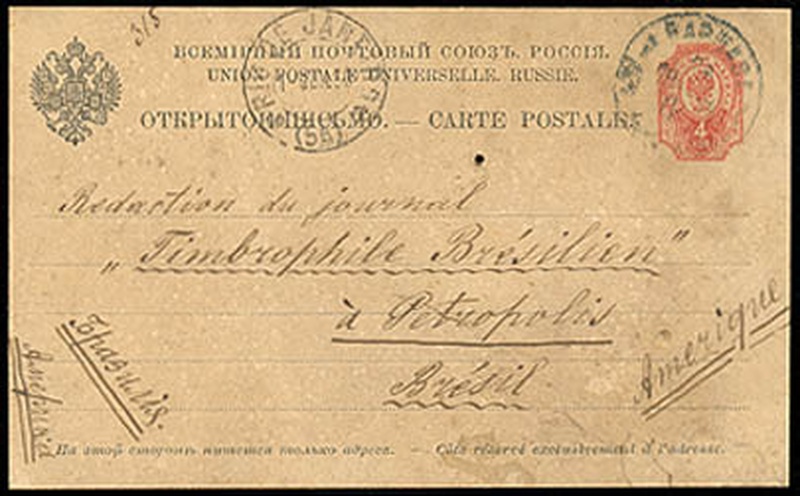 315
ВСЕМІРНЫЙ ПОЧТОВЫЙ СОЮЗЪ. РОССІЯ.
UNION POSTALE UNIVERSELLE. RUSSIE.
ОТКРЫТОЕ ПИСЬМО. — CARTE POSTALE.
4
(5A)
Redaction du journal
„Timbrophile Brésilien"
à Petropolis
Brésil
Amerique
Бразилія.
Америка
На этой сторонѣ пишется только адресъ. — Côté réservé exclusivement à l'adresse.